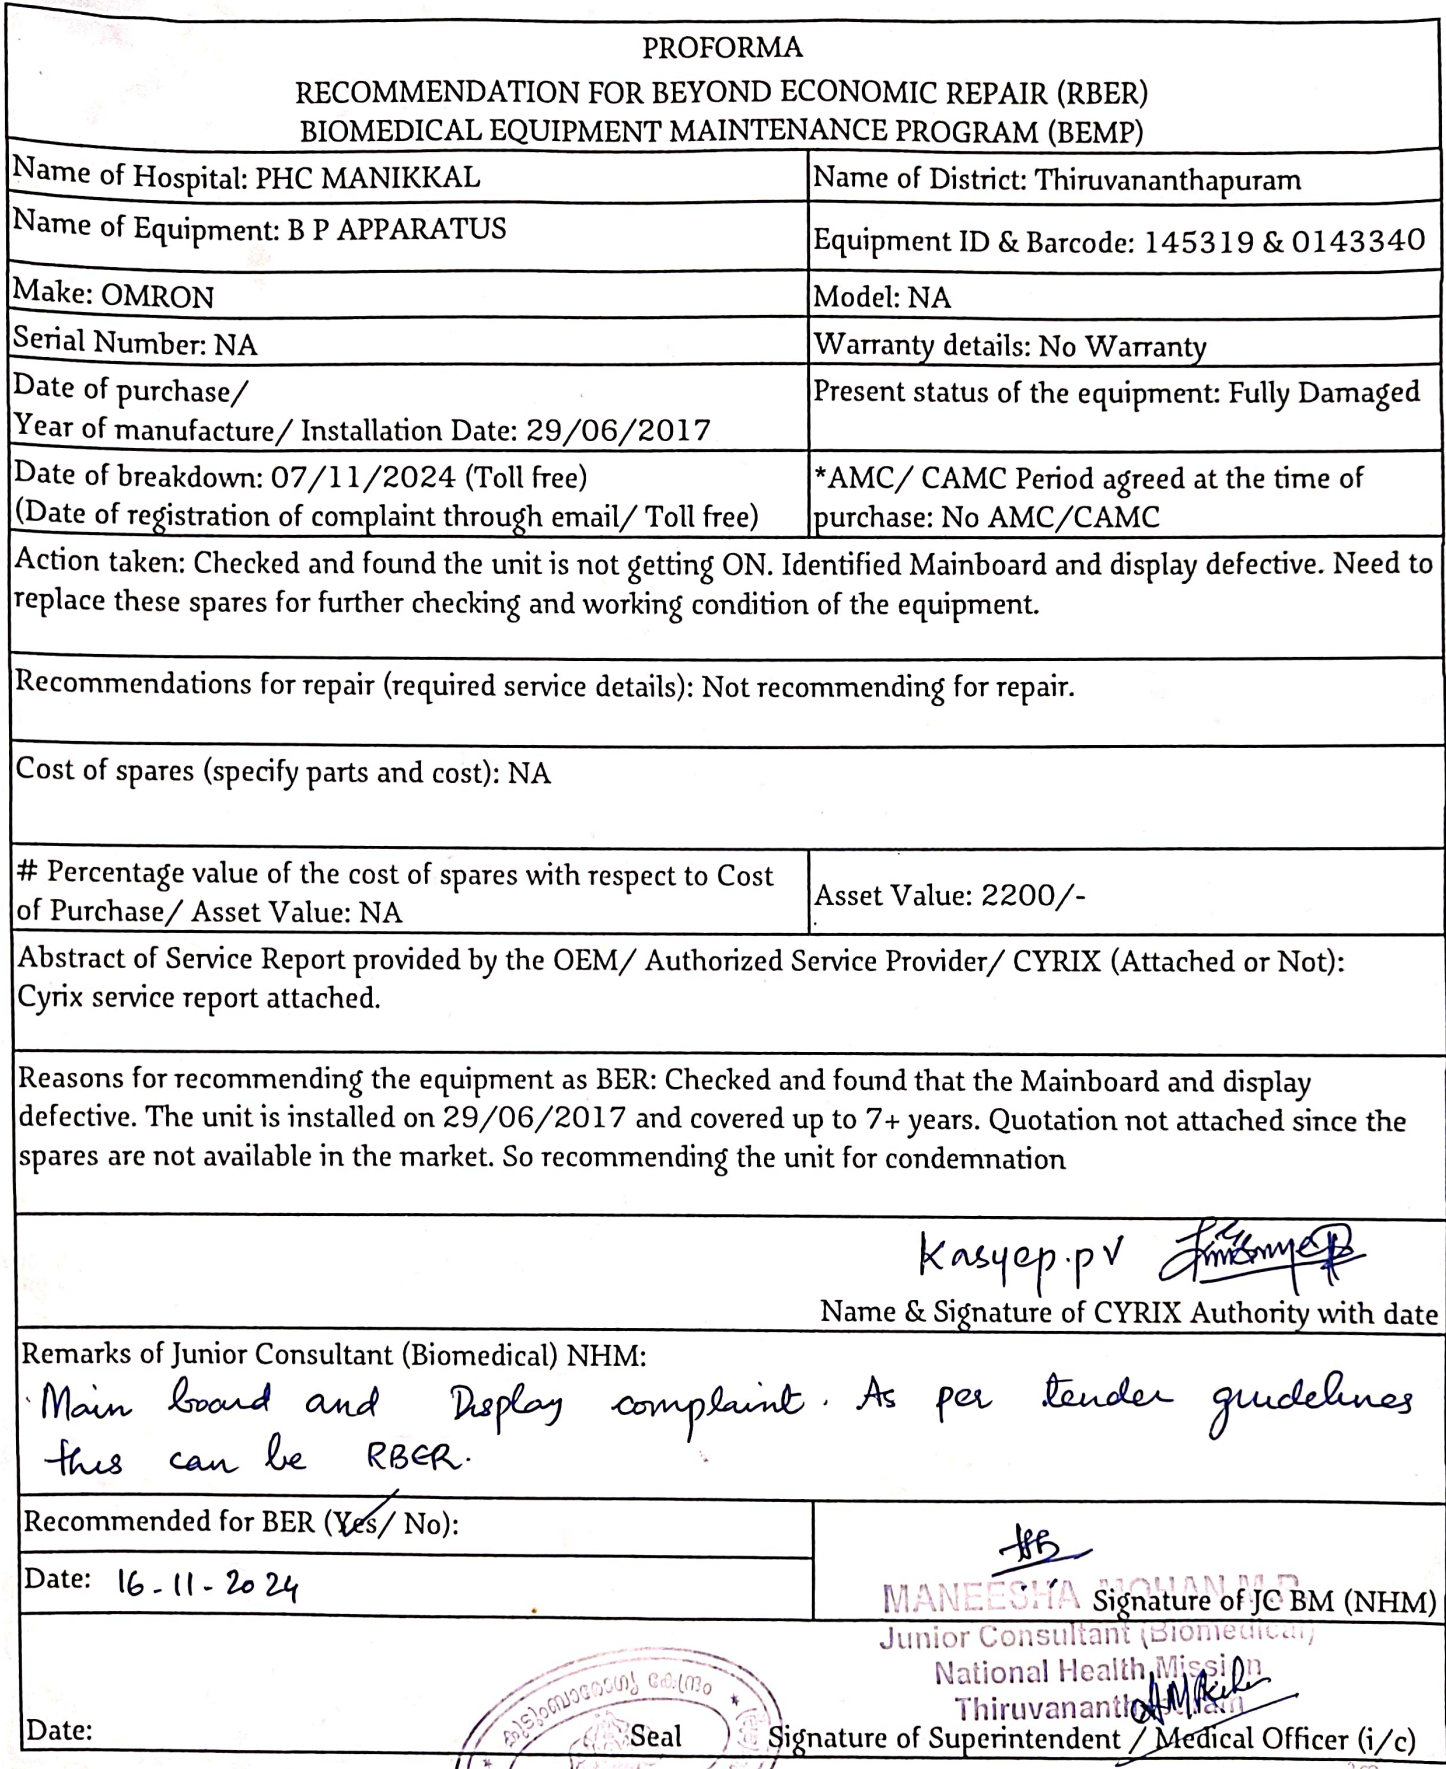 PROFORMA
RECOMMENDATION FOR BEYOND ECONOMIC REPAIR (RBER)
BIOMEDICAL EQUIPMENT MAINTENANCE PROGRAM (BEMP)
Name of Hospital: PHC MANIKKAL
Name of District: Thiruvananthapuram
Name of Equipment: B P APPARATUS
Equipment ID & Barcode: 145319 & 0143340
Make: OMRON
Model: NA
Serial Number: NA
Warranty details: No Warranty
Date of purchase/
Year of manufacture/ Installation Date: 29/06/2017
Present status of the equipment: Fully Damaged
Date of breakdown: 07/11/2024 (Toll free)
(Date of registration of complaint through email/ Toll free)
*AMC/ CAMC Period agreed at the time of
purchase: No AMC/CAMC
Action taken: Checked and found the unit is not getting ON. Identified Mainboard and display defective. Need to
replace these spares for further checking and working condition of the equipment.
Recommendations for repair (required service details): Not recommending for repair.
Cost of spares (specify parts and cost): NA
# Percentage value of the cost of spares with respect to Cost
of Purchase/ Asset Value: NA
Asset Value: 2200/-
Abstract of Service Report provided by the OEM/ Authorized Service Provider/ CYRIX (Attached or Not):
Cyrix service report attached.
Reasons for recommending the equipment as BER: Checked and found that the Mainboard and display
defective. The unit is installed on 29/06/2017 and covered up to 7+ years. Quotation not attached since the
spares are not available in the market. So recommending the unit for condemnation
Kasyap.pv
Name & Signature of CYRIX Authority with date
Remarks of Junior Consultant (Biomedical) NHM:
Main board and Display complaint. As per tender guidelines
this can be RBER.
Recommended for BER (Yes/ No):
Date: 16-11-2024
MANEESHA MOHAN M.P
Signature of JC BM (NHM)
Junior Consultant (Biomedical)
National Health Mission
Thiruvananthapuram
കുടുംബാരോഗ്യ കേന്ദ്രം
Date:
Seal
Signature of Superintendent / Medical Officer (i/c)